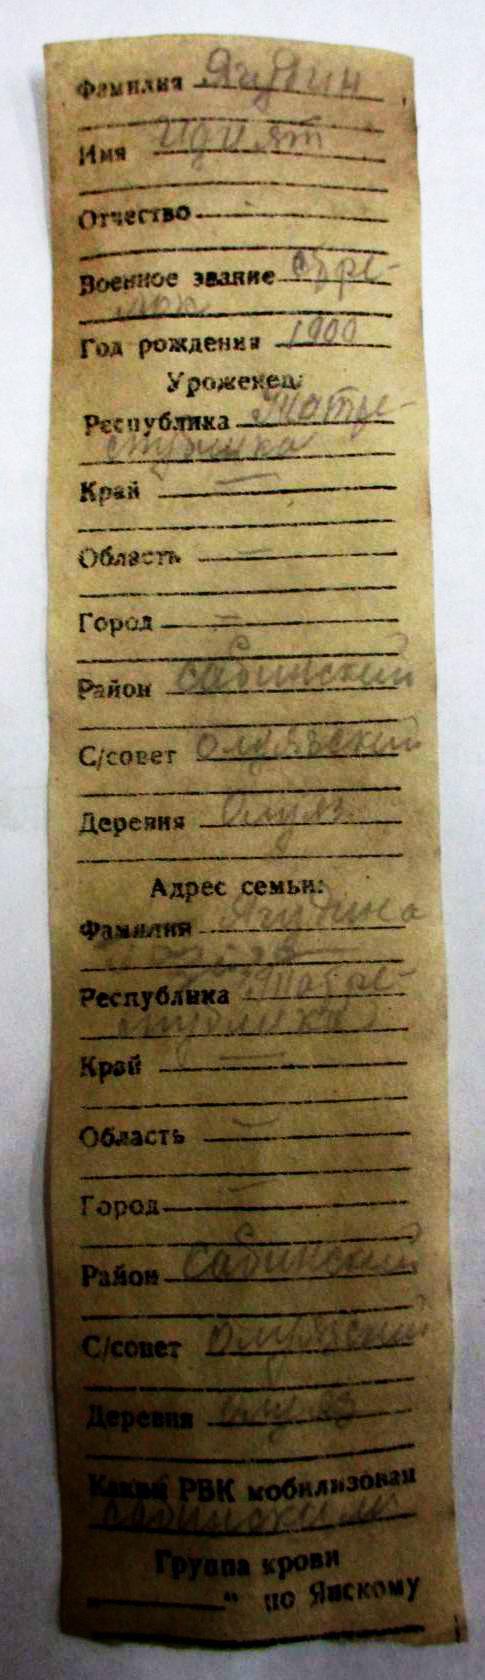 Фамилия Ягудин
Имя Идият
Отчество
Военное звание стре-
лок
Год рождения 1900
Уроженец:
Республика Татре-
спублика
Край —
Область —
Город =
Район Сабинский
С/совет
Деревня
Адрес семьи:
Фамилия Ягудина
Республика Татре-
спублика
Край —
Область —
Город —
Район Сабинский
С/совет
Деревня
Каким РВК мобилизован
Сабинским
Группа крови
" по Янскому